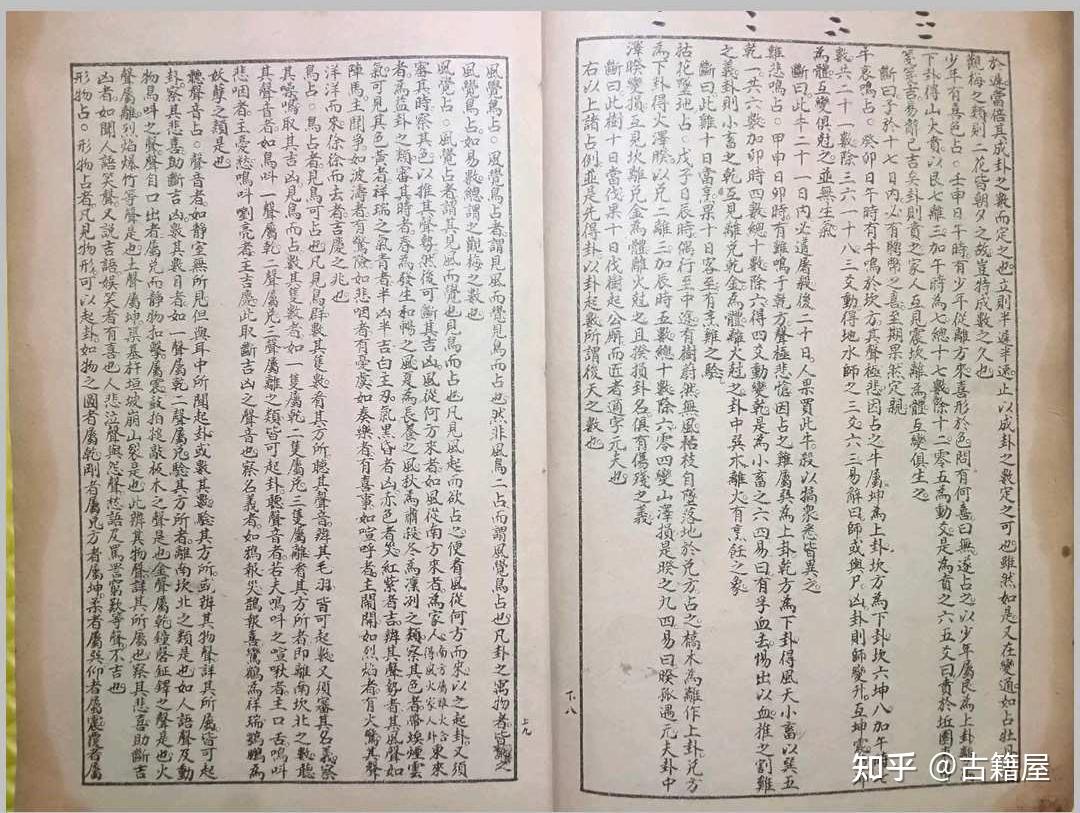 於遲當倍其成卦之數而定之也立則半遲半速止以成卦之數定之可也雖然如是又在變通如占牡丹
觀梅之類則二花皆朝夕之故豈特成數之久也
少年有喜色占○壬申日午時有少年從離方來喜形於色問有何喜曰無遂占之以少年屬艮為上卦離
下卦得山火賁以艮七離三加午時為七總十七數除十二零五為動爻是為賁之六五爻曰賁於坵園束
箋箋吝吉易辭已吉矣卦則賁之家人互見震坎離為體互變俱生之
斷曰子於十七日內必有聘幣之喜至期果然定親
牛哀鳴占○癸卯日午時有牛鳴於坎方其聲極悲因占之牛屬坤為上卦坎方為下卦坎六坤八加午
數共二十一數除三六一十八三爻動得地水師之三爻六三易辭曰師或輿尸凶卦則師變升互坤震
為體互變俱尅之並無生氣
斷曰此牛二十一日內必遭屠殺後二十日人果買此牛殺以犒衆悉皆異之
雞悲鳴占○甲申日卯時有雞鳴于乾方聲極悲愴因占之雞屬巽為上卦乾方為下卦得風天小畜以巽五
乾一共六數加卯時四數總十數除六得四爻動變乾是為小畜之六四易曰有孚血去惕出以血推之割雞
之義卦則小畜之乾互見離兌乾金為體離火尅之卦中巽木離火有烹飪之象
斷曰此雞十日當烹果十日客至有烹雞之驗
枯花墜地占○戊子日辰時偶行至中途有樹蔚然無風枯枝自墜落地於兌方占之槁木為離作上卦兌方
為下卦得火澤睽以兌二離三加辰時五數總十數除六零四變山澤損是睽之九四易曰睽孤遇元夫卦中
澤睽變損互見坎離兌金為體離火尅之且睽損卦名俱有傷殘之義
斷曰此樹十日當伐果十日伐樹起公廨而匠者適字元夫也
右以上諸占例並是先得卦以卦起數所謂後天之數也
下八
上九
風覺鳥占○風覺鳥占者謂見風而覺見鳥而占也然非風鳥二占而謂風覺鳥占也凡卦之寓物者皆謂之
風覺鳥占如易數總謂之觀梅之數也
風覺占○風覺占者謂其見風而覺也見鳥而占也凡見風起而欲占之便看風從何方而來以之起卦又須
審其時察其色以推其聲勢然後可斷其吉凶風從何方來者如風從南方來者為家人南方屬離火合東來
者為益卦之類審其時者春為發生和暢之風夏為長養之風秋為肅殺冬為凛冽之類察其色者帶埃煙雲
氣可見其色黃者祥瑞之氣青者半凶半吉白主刃氣黑昏者凶赤色者災紅紫者吉辨其聲勢者其風聲如
陣馬主鬭爭如波濤者有驚險如悲咽者有憂虞如奏樂者有喜事如喧呼者主鬧鬨如烈焰者有火驚其聲
洋洋而來徐徐而去者吉慶之兆也
鳥占○鳥占者見鳥可占也凡見鳥群數其隻數看其方所聽其聲音辨其毛羽皆可起數又須審其名義察
其喧鳴取其吉凶見鳥而占數其隻數者如一隻屬乾二隻屬兌三隻屬離看其方所者即離南坎北之數聽
其聲音者如鳥叫一聲屬乾二聲屬兌三聲屬離之類皆可起卦聽聲音者若夫鳴叫之喧啾者主口舌鳴叫
悲咽者主憂愁鳴叫嘹亮者主吉慶此取斷吉凶之聲音也察名義者如鴉報災鵲報喜鸞鶴為祥瑞鶚鵩為
妖孽之類是也
聽聲音占○聲音者如靜室無所見但與耳中所聞起卦或數其數驗其方所或辨其物聲詳其所屬皆可起
卦察其悲喜助斷吉凶數其數目者如一聲屬乾二聲屬兌驗其方所者離南坎北之類是也如人語聲及動
物鳥叫之聲聲自口出者屬兌而靜物扣擊屬震鼓拍搥敲板木之聲是也金聲屬乾鐘磬鉦鐸之聲是也火
聲屬離烈焰爆竹等聲是也土聲屬坤築基杵垣坡崩山裂是也此辨其物聲詳其所屬也察其悲喜助斷吉
凶者如聞人語笑聲又說吉語娛笑者有喜也人悲泣聲與怨聲愁語及罵詈窮歎等聲不吉也
形物占○形物占者凡見物形可以起卦如物之圓者屬乾剛者屬兌方者屬坤柔者屬巽仰者屬震覆者屬